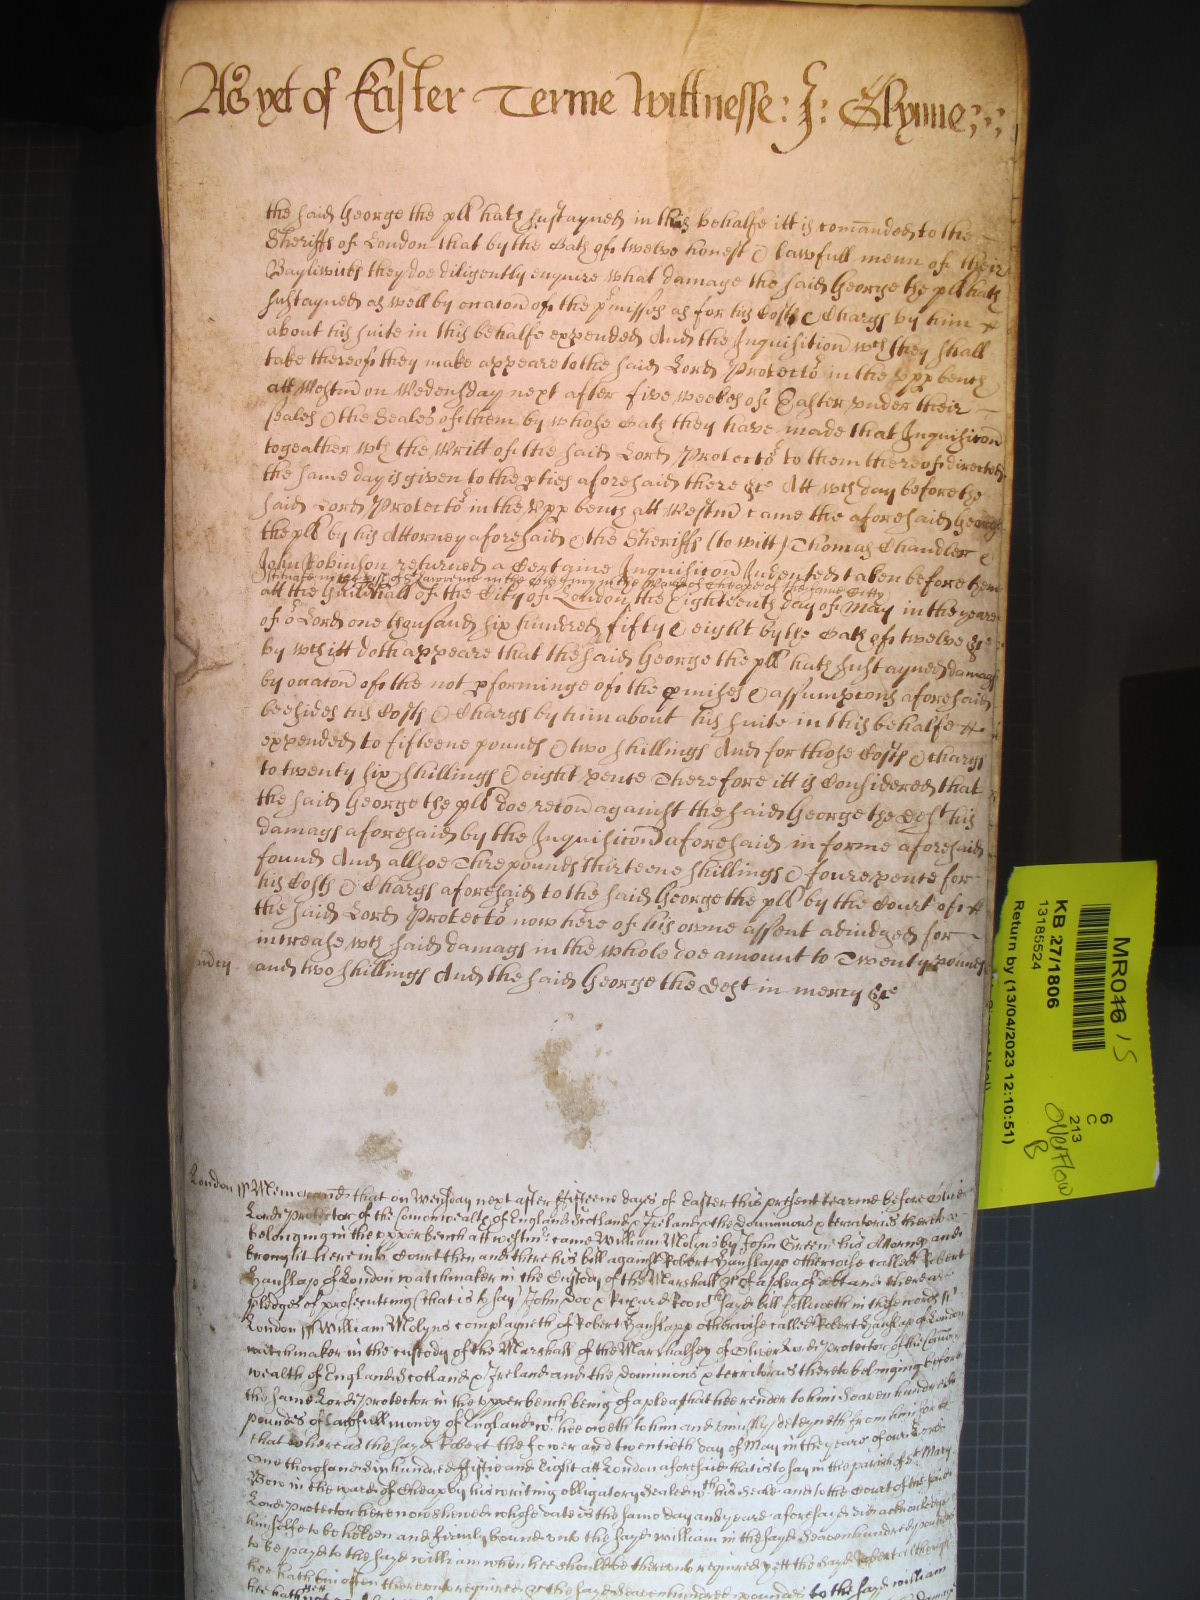 As yet of Easter Terme Wittnesse: J: Glynne;
the said George the pll hath sustayned in this behalfe itt is comanded to the
Sheriffs of London that by the Oath of twelve honest & lawfull menn of their
Bayliwick they doe diligently enquire what damage the said George the pll hath
sustayned as well by occation of the pmisses as for his Costs & Chargs by him
about his suite in this behalfe expended And the Inquisition wch they shall
take thereof they make appeare to the said Lord Protector in the Upp bench
att Westm on Wedensday next after five weekes of Easter under their
seales & the Seales of them by whose Oath they have made that Inquisicon
togeather wth the Writt of the said Lord Protector to them thereof directed
the same day is given to the pties aforesaid there &c Att wch day before the
said Lord Protector in the Upp bench att Westm came the aforesaid George
the pll by his Attorney aforesaid & the Sheriffs (to witt) Thomas Chandler &
John Robinson returned a Certaine Inquisicon Indented taken before them
in the Ward of Cheape of the same Citty
att the Guildhall of the City of London the Eighteenth day of May in the yeare
of or Lord one thousand six hundred fifty & eight by the Oath of twelve &c
by wch itt doth appeare that the said George the pll hath sustayned damags
by occation of the not pforminge of the pmises & assumpcons aforesaid
besides his Costs & Chargs by him about his suite in this behalfe
expended to fifteene pounds & two shillings And for those Costs & chargs
to twenty six shillings & eight pence Therefore itt is Considered that
the said George the pll doe recov against the said George the deft his
damags aforesaid by the Inquisicon aforesaid in forme aforesaid
found And allsoe Three pounds thirteene shillings & foure pence for
his Costs & Chargs aforesaid to the said George the pll by the Court of
the said Lord Protector now here of his owne assent adiudged for
increase wch said damags in the whole doe amount to Twenty pounds
and two shillings And the said George the deft in mercy &c
London ss Memorand that on Wensday next after fifteene dayes of Easter this present tearme before Oliver
Lord Protector of the Comonwealth of England Scotland & Ireland & the dominions & territories thereto
belonging in the upper bench att westm came William Molyns by John Green his Attorny and
brought here into Court then and there his bill against Robert Hanslapp otherwise called Robert
Hanslap of London watchmaker in the Custody of the Marshall &c of a plea of debt and there are
pledges of prosecuting (that is to say) John Doo & Richard Roo wch sayd bill followeth in these words ss
London ss William Molyns complayneth of Robert Hanslapp otherwise called Robert Hanslap of London
watchmaker in the custody of the Marshall of the Marshalsey of Oliver Lord Protector of the Comon
wealth of England Scotland & Ireland and the dominions & territories thereto belonging before
the same Lord Protector in the upper bench being of a plea that hee render to him Seaven hundred
pounds of lawfull money of England wch hee oweth to him and uniustly deteyneth from him for
that whereas the sayd Robert the fower and twentieth day of May in the yeare of our Lord
one thousand six hundred fiftie and Eight att London aforesaid that is to say in the parish of St Mary
Bow in the ward of Cheap by his writing obligatory Sealed wth his Seale and to the Court of the said
Lord Protector here now shewed whose date is the same day and yeare aforesayd did acknowledge
himselfe to be holden and firmly bound unto the sayd William in the sayd Seaven hundred pounds
to be payd to the sayd William when hee should be thereunto required yett the sayd Robert although
hee hath bin often thereunto required &c the sayd Seaven hundred pounds to the sayd William
MR046 15
KB 27/1806
13185524
Return by (13/04/2023 12:10:51)
6
C
213
Overflow
B